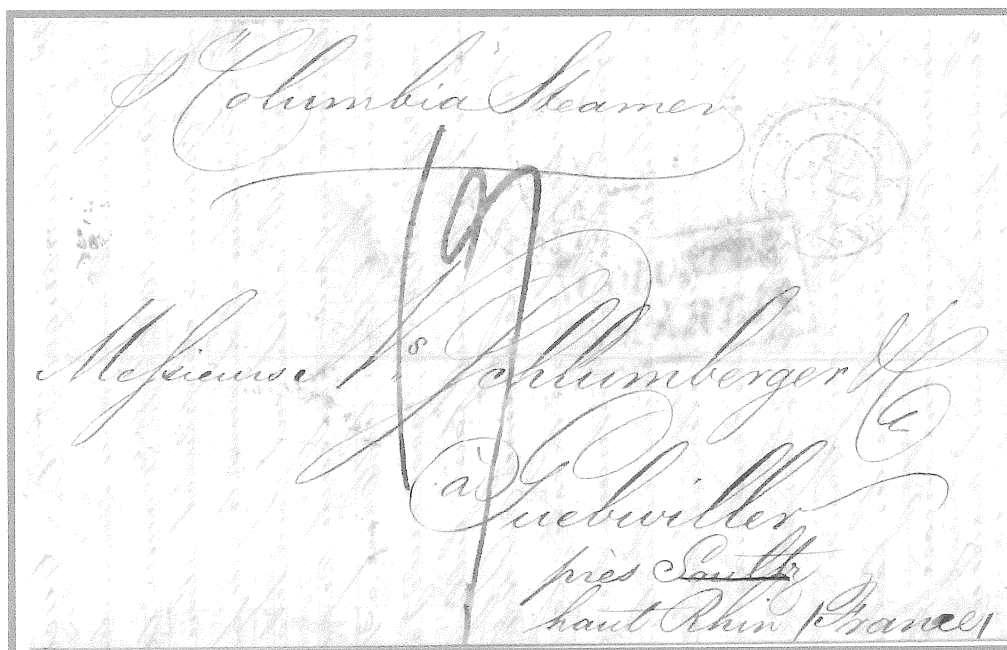 p "Columbia" Steamer
19
Messieurs Ns Schlumberger & Co
à Guebwiller
près Soultz
haut Rhin (France)